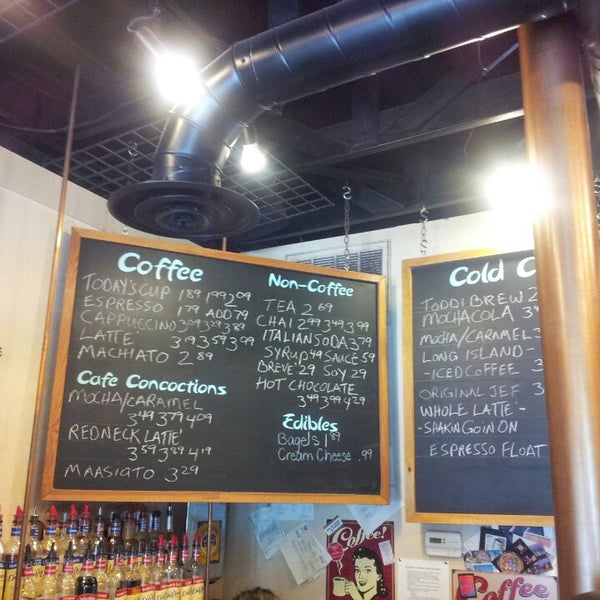 Coffee
TODAY'S CUP 189 199 209
ESPRESSO 179 ADD 79
CAPPUCCINO 309 329 389
LATTE 319 359 399
MACHIATO 2 89
Cafe Concoctions
MOCHA/CARAMEL
3 49 3 79 4 09
REDNECK LATTE'
3 59 3 89 4 19
MAASIATO 3 29
Non-Coffee
TEA 2 69
CHAI 2 99 3 49 3 99
ITALIAN SODA 3 79
SYRUP 49 SAUCE 59
BREVE' 29 SOY 29
HOT CHOCOLATE
3 49 3 99 4 29
Edibles
Bagels 1 89
Cream Cheese .99
Cold C
TODDI BREW 2
MOCHACOLA 3
MOCHA/CARAMEL 3
LONG ISLAND-
-ICED COFFEE 3
ORIGINAL JEF 3
WHOLE LATTE'-
-SHAKIN GOIN ON
ESPRESSO FLOAT
Coffee!
Coffee